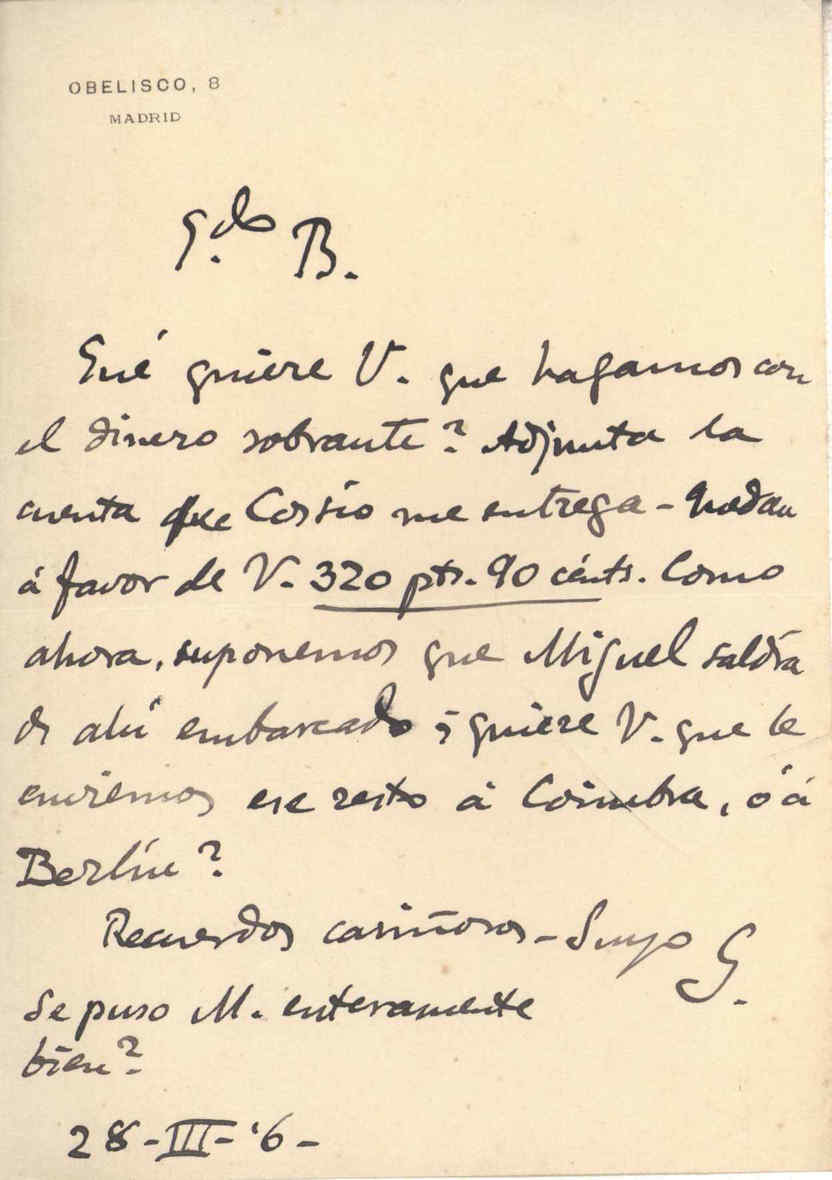 OBELISCO, 8
MADRID
Q.do B.
Qué quiere V. que hagamos con
el dinero sobrante? Adjunta la
cuenta que Cossío me entrega - Quedan
á favor de V. 320 pts. 90 cénts. Como
ahora, suponemos que Miguel saldrá
de ahí embarcado ¿quiere V. que le
enviemos ese resto á Coimbra, ó á
Berlín?
Recuerdos cariñosos - Suyo G.
Se puso M. enteramente
bien?
28-III-'6-